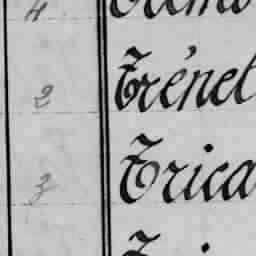 4
2 Trénel
3 Trica